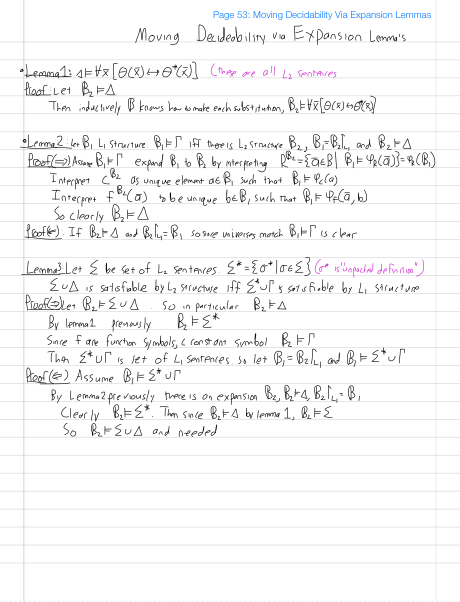 Page 53: Moving Decidability Via Expansion Lemmas
Moving Decideability via Expansion Lemma's
• Lemma 1: Δ⊨∀x̄[θ(x̄)↔θ*(x̄)] (these are all L₂ sentences
Proof: Let B₂⊨Δ
Then inductively B knows how to make each substitution, B₂⊨∀x̄[θ(x̄)↔θ*(x̄)]
• Lemma 2: let B₁ L₁ structure. B₁⊨Γ iff there is L₂ structure B₂, B₁=B₂|L₁ and B₂⊨Δ
Proof(⇒) Assume B₁⊨Γ expand B₁ to B₂ by interpreting R^B₂={ā∈B | B₁⊨φ_R(ā)}=φ_R(B₁)
Interpret c^B₂ as unique element a∈B₁ such that B₁⊨φ_c(a)
Interpret f^B₂(ā) to be unique b∈B₁ such that B₁⊨φ_f(ā,b)
So clearly B₂⊨Δ
Proof(⇐): If B₂⊨Δ and B₂|L₁=B₁ so since universes match B₁⊨Γ is clear
Lemma 3: Let Σ be set of L₂ sentences. Σ*={σ*|σ∈Σ} (σ* is "unpacked definition")
Σ∪Δ is satisfiable by L₂ structure iff Σ*∪Γ is satisfiable by L₁ structure
Proof(⇒) Let B₂⊨Σ∪Δ. So in particular B₂⊨Δ
By lemma 1 previously B₂⊨Σ*
Since f are function symbols, c constant symbol B₂⊨Γ
Then Σ*∪Γ is set of L₁ sentences. So let B₁=B₂|L₁ and B₁⊨Σ*∪Γ
Proof(⇐) Assume B₁⊨Σ*∪Γ
By Lemma 2 previously there is an expansion B₂, B₂⊨Δ, B₂|L₁=B₁
Clearly B₂⊨Σ*. Then since B₂⊨Δ by lemma 1, B₂⊨Σ
So B₂⊨Σ∪Δ and needed